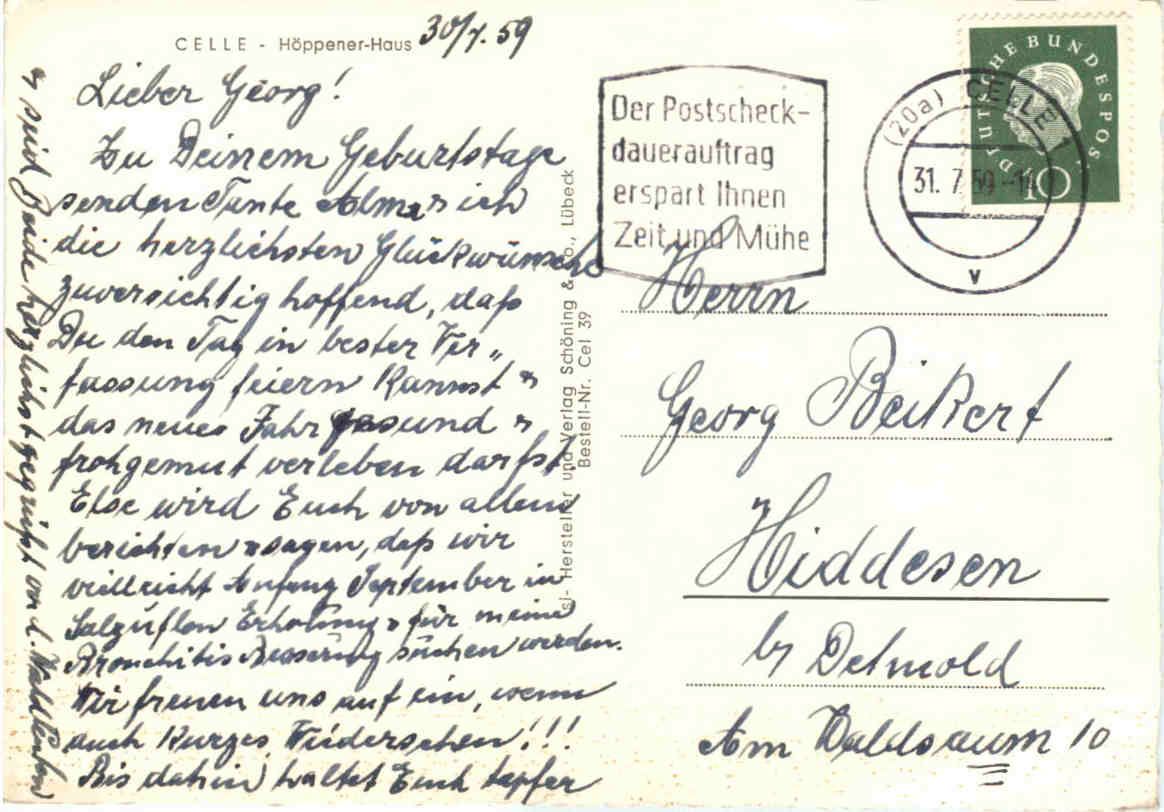 CELLE - Höppener-Haus
30/7. 59
Lieber Georg!
Zu Deinem Geburtstage
senden Tante Alma u ich
die herzlichsten Glückwünsche
zuversichtig hoffend, daß
Du den Tag in bester Ver„
fassung feiern kannst u
das neues Jahr gesund u
frohgemut verleben darfst.
Else wird Euch von allem
berichten u sagen, daß wir
vielleicht Anfang September in
Salzuflen Erholung u für meine
Bronchitis Besserung suchen werden.
Wir freuen uns auf ein, wenn
auch kurzes Wiedersehen!!!
Bis dahin haltet Euch tapfer
u seid beide herzlichst gegrüßt von d.
si- Hersteller und Verlag Schöning & Co., Lübeck
Bestell-Nr. Cel 39
Der Postscheck-
dauerauftrag
erspart Ihnen
Zeit und Mühe
(20a) CELLE 1
31. 7. 59 -14
v
DEUTSCHE BUNDESPOST
10
Herrn
Georg Beikert
Hiddesen
by Detmold
Am Waldsaum 10